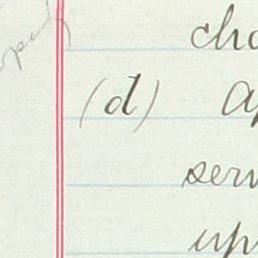 cha
(d) a
serv
up